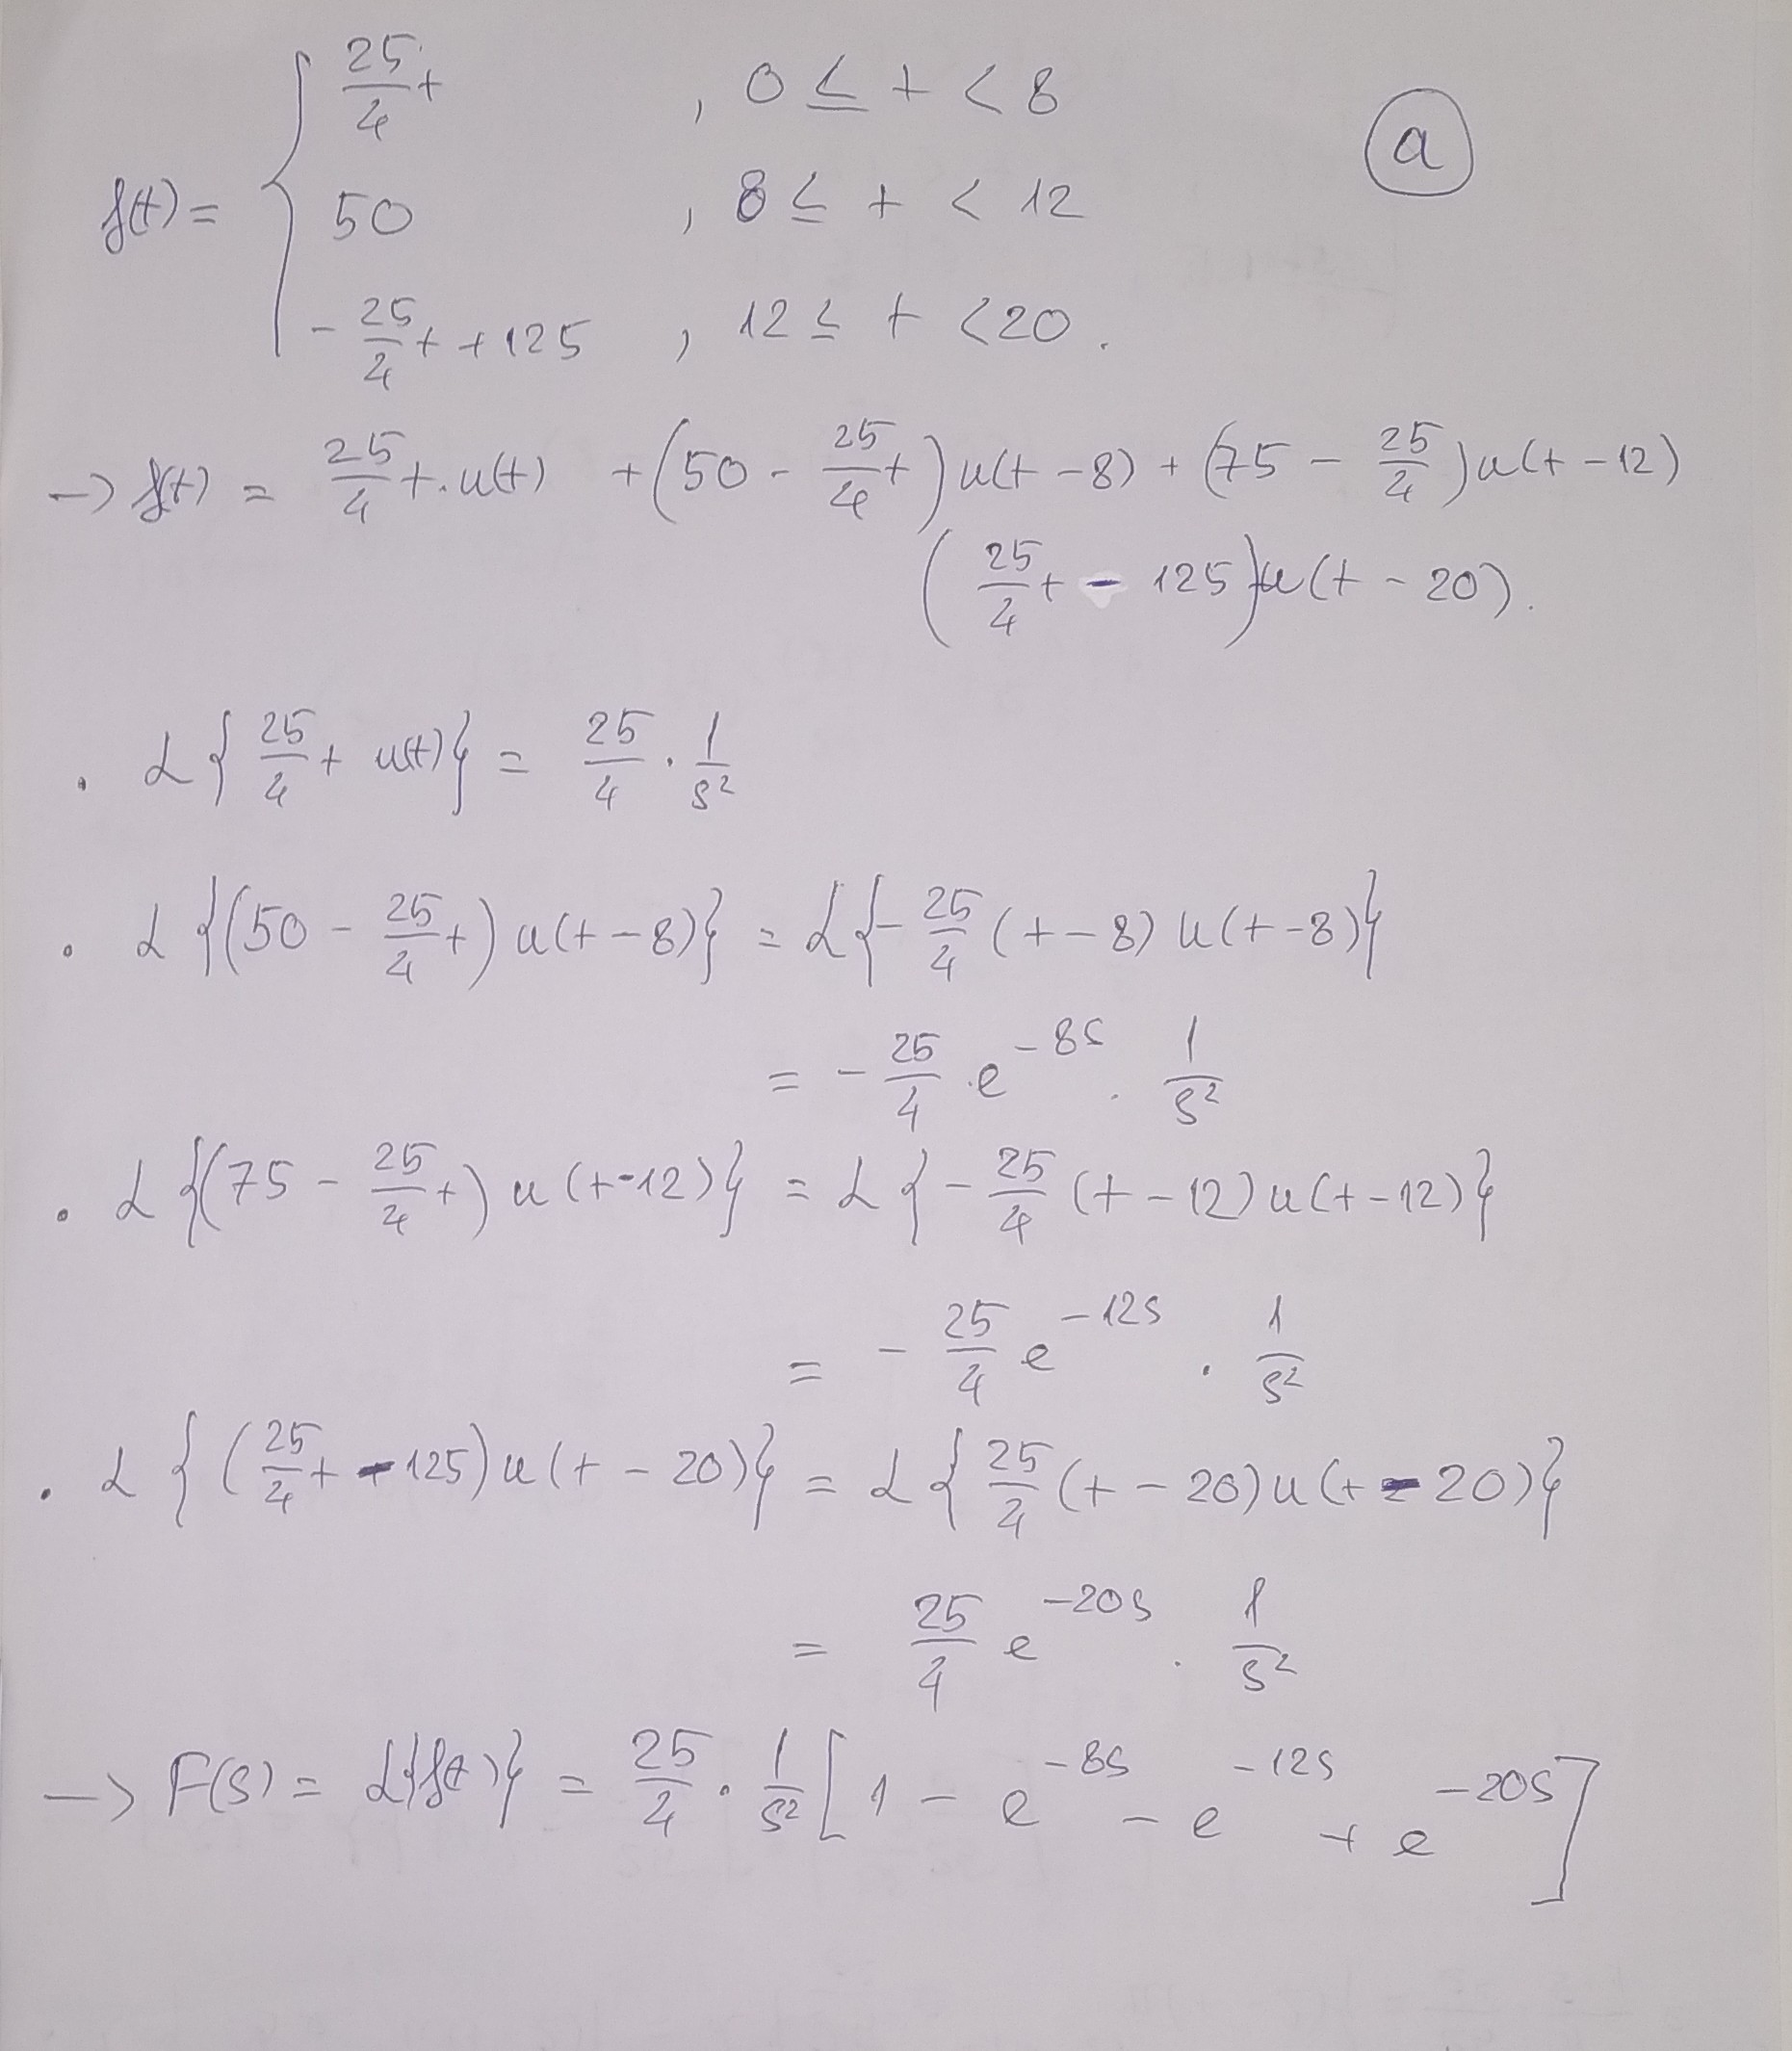 f(t) = { 25/4 t , 0 ≤ t < 8
50 , 8 ≤ t < 12
- 25/4 t + 125 , 12 ≤ t < 20 .
(a)
-> f(t) = 25/4 t . u(t) + (50 - 25/4 t) u(t - 8) + (75 - 25/4) u(t - 12)
(25/4 t - 125) u(t - 20) .
. L{25/4 t u(t)} = 25/4 . 1/s²
. L{(50 - 25/4 t) u(t - 8)} = L{- 25/4 (t - 8) u(t - 8)}
= - 25/4 . e^(-8s) . 1/s²
. L{(75 - 25/4 t) u(t - 12)} = L{- 25/4 (t - 12) u(t - 12)}
= - 25/4 e^(-12s) . 1/s²
. L{(25/4 t - 125) u(t - 20)} = L{25/4 (t - 20) u(t - 20)}
= 25/4 e^(-20s) . 1/s²
-> F(s) = L{f(t)} = 25/4 . 1/s² [1 - e^(-8s) - e^(-12s) + e^(-20s)]